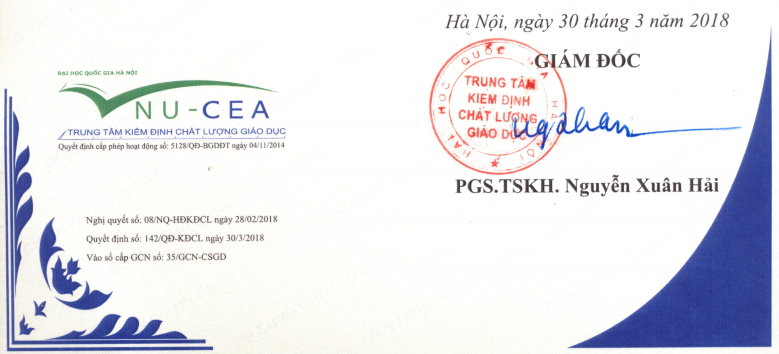 Hà Nội, ngày 30 tháng 3 năm 2018
GIÁM ĐỐC
ĐẠI HỌC QUỐC GIA HÀ NỘI
VNU-CEA
TRUNG TÂM KIỂM ĐỊNH CHẤT LƯỢNG GIÁO DỤC
Quyết định cấp phép hoạt động số: 5128/QĐ-BGDĐT ngày 04/11/2014
ĐẠI HỌC QUỐC GIA HÀ NỘI
TRUNG TÂM
KIỂM ĐỊNH
CHẤT LƯỢNG
GIÁO DỤC
PGS.TSKH. Nguyễn Xuân Hải
Nghị quyết số: 08/NQ-HĐKĐCL ngày 28/02/2018
Quyết định số: 142/QĐ-KĐCL ngày 30/3/2018
Vào sổ cấp GCN số: 35/GCN-CSGD